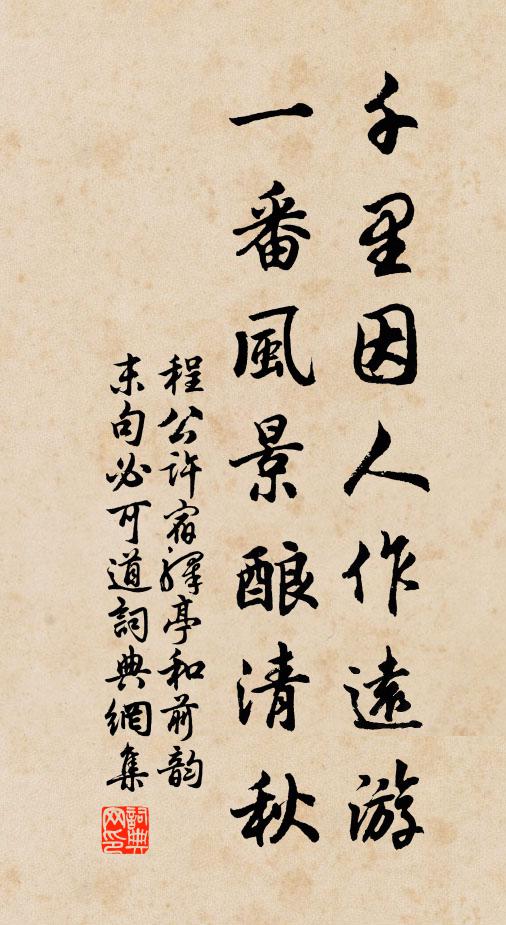 千里因人作遠游
一番風景酿清秋
程公许宿驛亭和前韵
末句必可道詞典網集
詞典网印